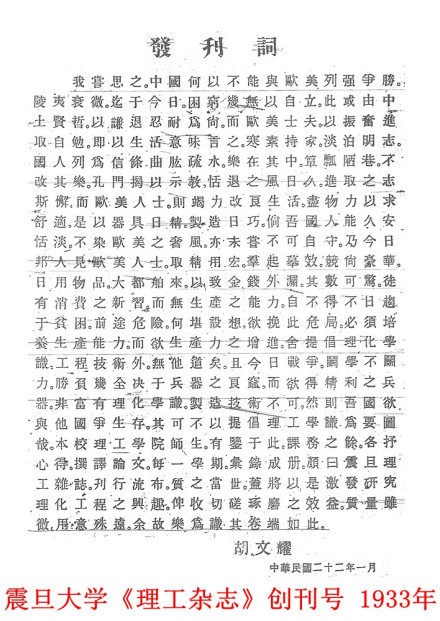 發刊詞
我嘗思之。中國何以不能與歐美列强爭勝。
陵夷衰微。迄于今日。困窮幾無以自立。此或由中
土賢哲。以謙退忍耐爲尚。而歐美士夫。以振奮進
取自勉。卽以生活意味言之。寒素持家。淡泊明志。
國人列爲信條。曲肱疏水。樂在其中。簞瓢陋巷。不
改其樂。孔門揭以示教。恬退之風日久。進取之志
斯懈。而歐美人士。則竭力改良生活。盡物力以求
舒適。是以器具日精。製造日巧。倘吾國人能久安
恬淡。不染歐美之奢風。亦未嘗不可自守。乃今日
邦人見歐美人士。取精用宏。羣起摹效。競尚豪華。
日用物品。大都舶來。以致金錢外漏。其數可驚。徒
有消費之新習。而無生產之能力。不得不日趨
于貧困。前途危險。何堪設想。欲挽此危局。必須培
養生產能力。而欲生產增進。舍提倡理化學
識工程技術外。無他道矣。且今日戰爭。鬬學不鬬
力。勝負幾全決于兵器之良窳。戰而欲精利之兵
器。非富有理化學識。製造技術不可。然則吾國欲
與他國爭生存。可不以提倡理工學識爲要圖
哉。本校理工學院師生。有鑒于此。課務之餘。各抒
心得。撰譯論文。每一學期。彙錄成册。顏曰震旦理
工雜誌。刊行流布。當世。蓋將以是激發研究
理化工程之興趣。俾收切磋琢磨之效益。質量雖
微。用意殊遠。余故樂爲識其卷端如此。
胡文耀
中華民國二十二年一月
震旦大学《理工杂志》创刊号 1933年